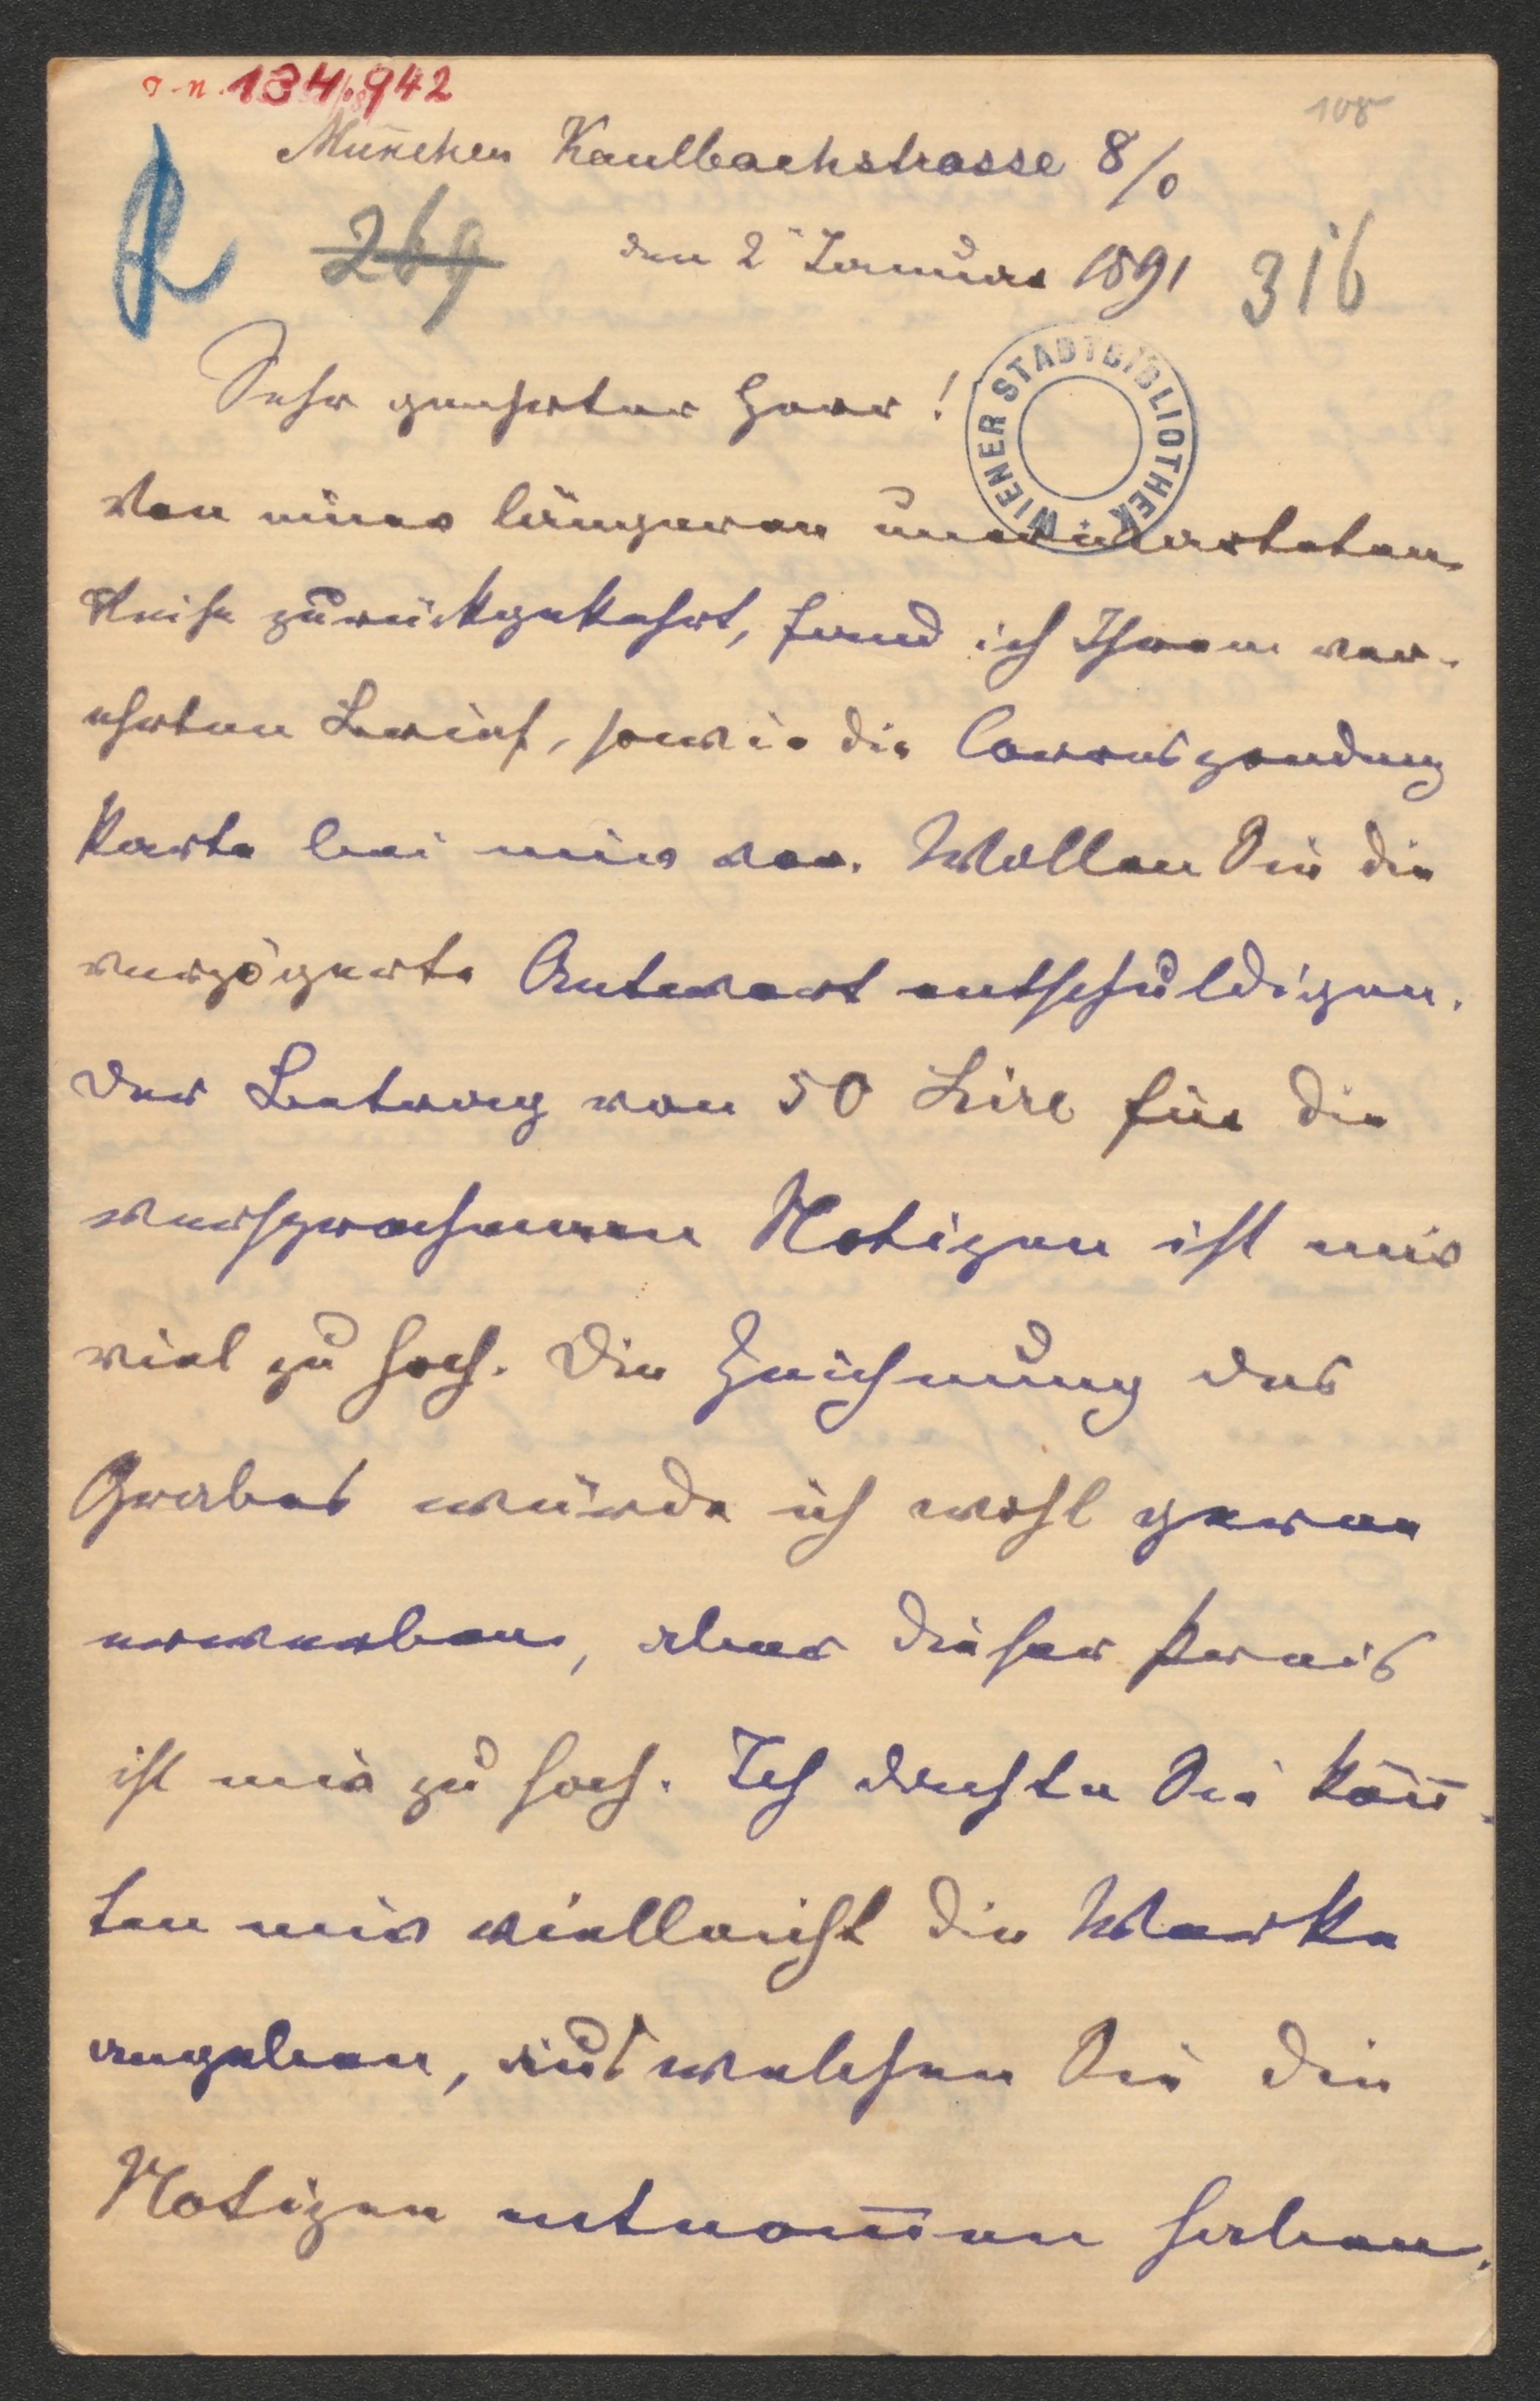 I. N. 134.942
108
München Kaulbachstrasse 8/0
269
den 2 Januar 1891
316
Sehr geehrter Herr!
WIENER STADTBIBLIOTHEK
Von einer längeren unerwarteten
Reise zurückgekehrt, fand ich Ihren ver-
ehrten Brief, sowie die Correspondenz
Karte bei mir vor. Wollen Sie die
verzögerte Antwort entschuldigen.
Der Betrag von 50 Lire für die
versprochenen Notizen ist mir
viel zu hoch. Die Zeichnung des
Grabes würde ich wohl gerne
erwerben, aber dieser Preis
ist mir zu hoch. Ich dachte Sie kön̄-
ten mir vielleicht die Werke
angeben, aus welchen Sie die
Notizen entnom̄en haben.